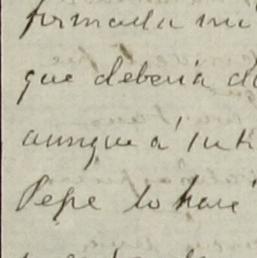 formada mi
que deberia d
aunque á
Pepe lo haré